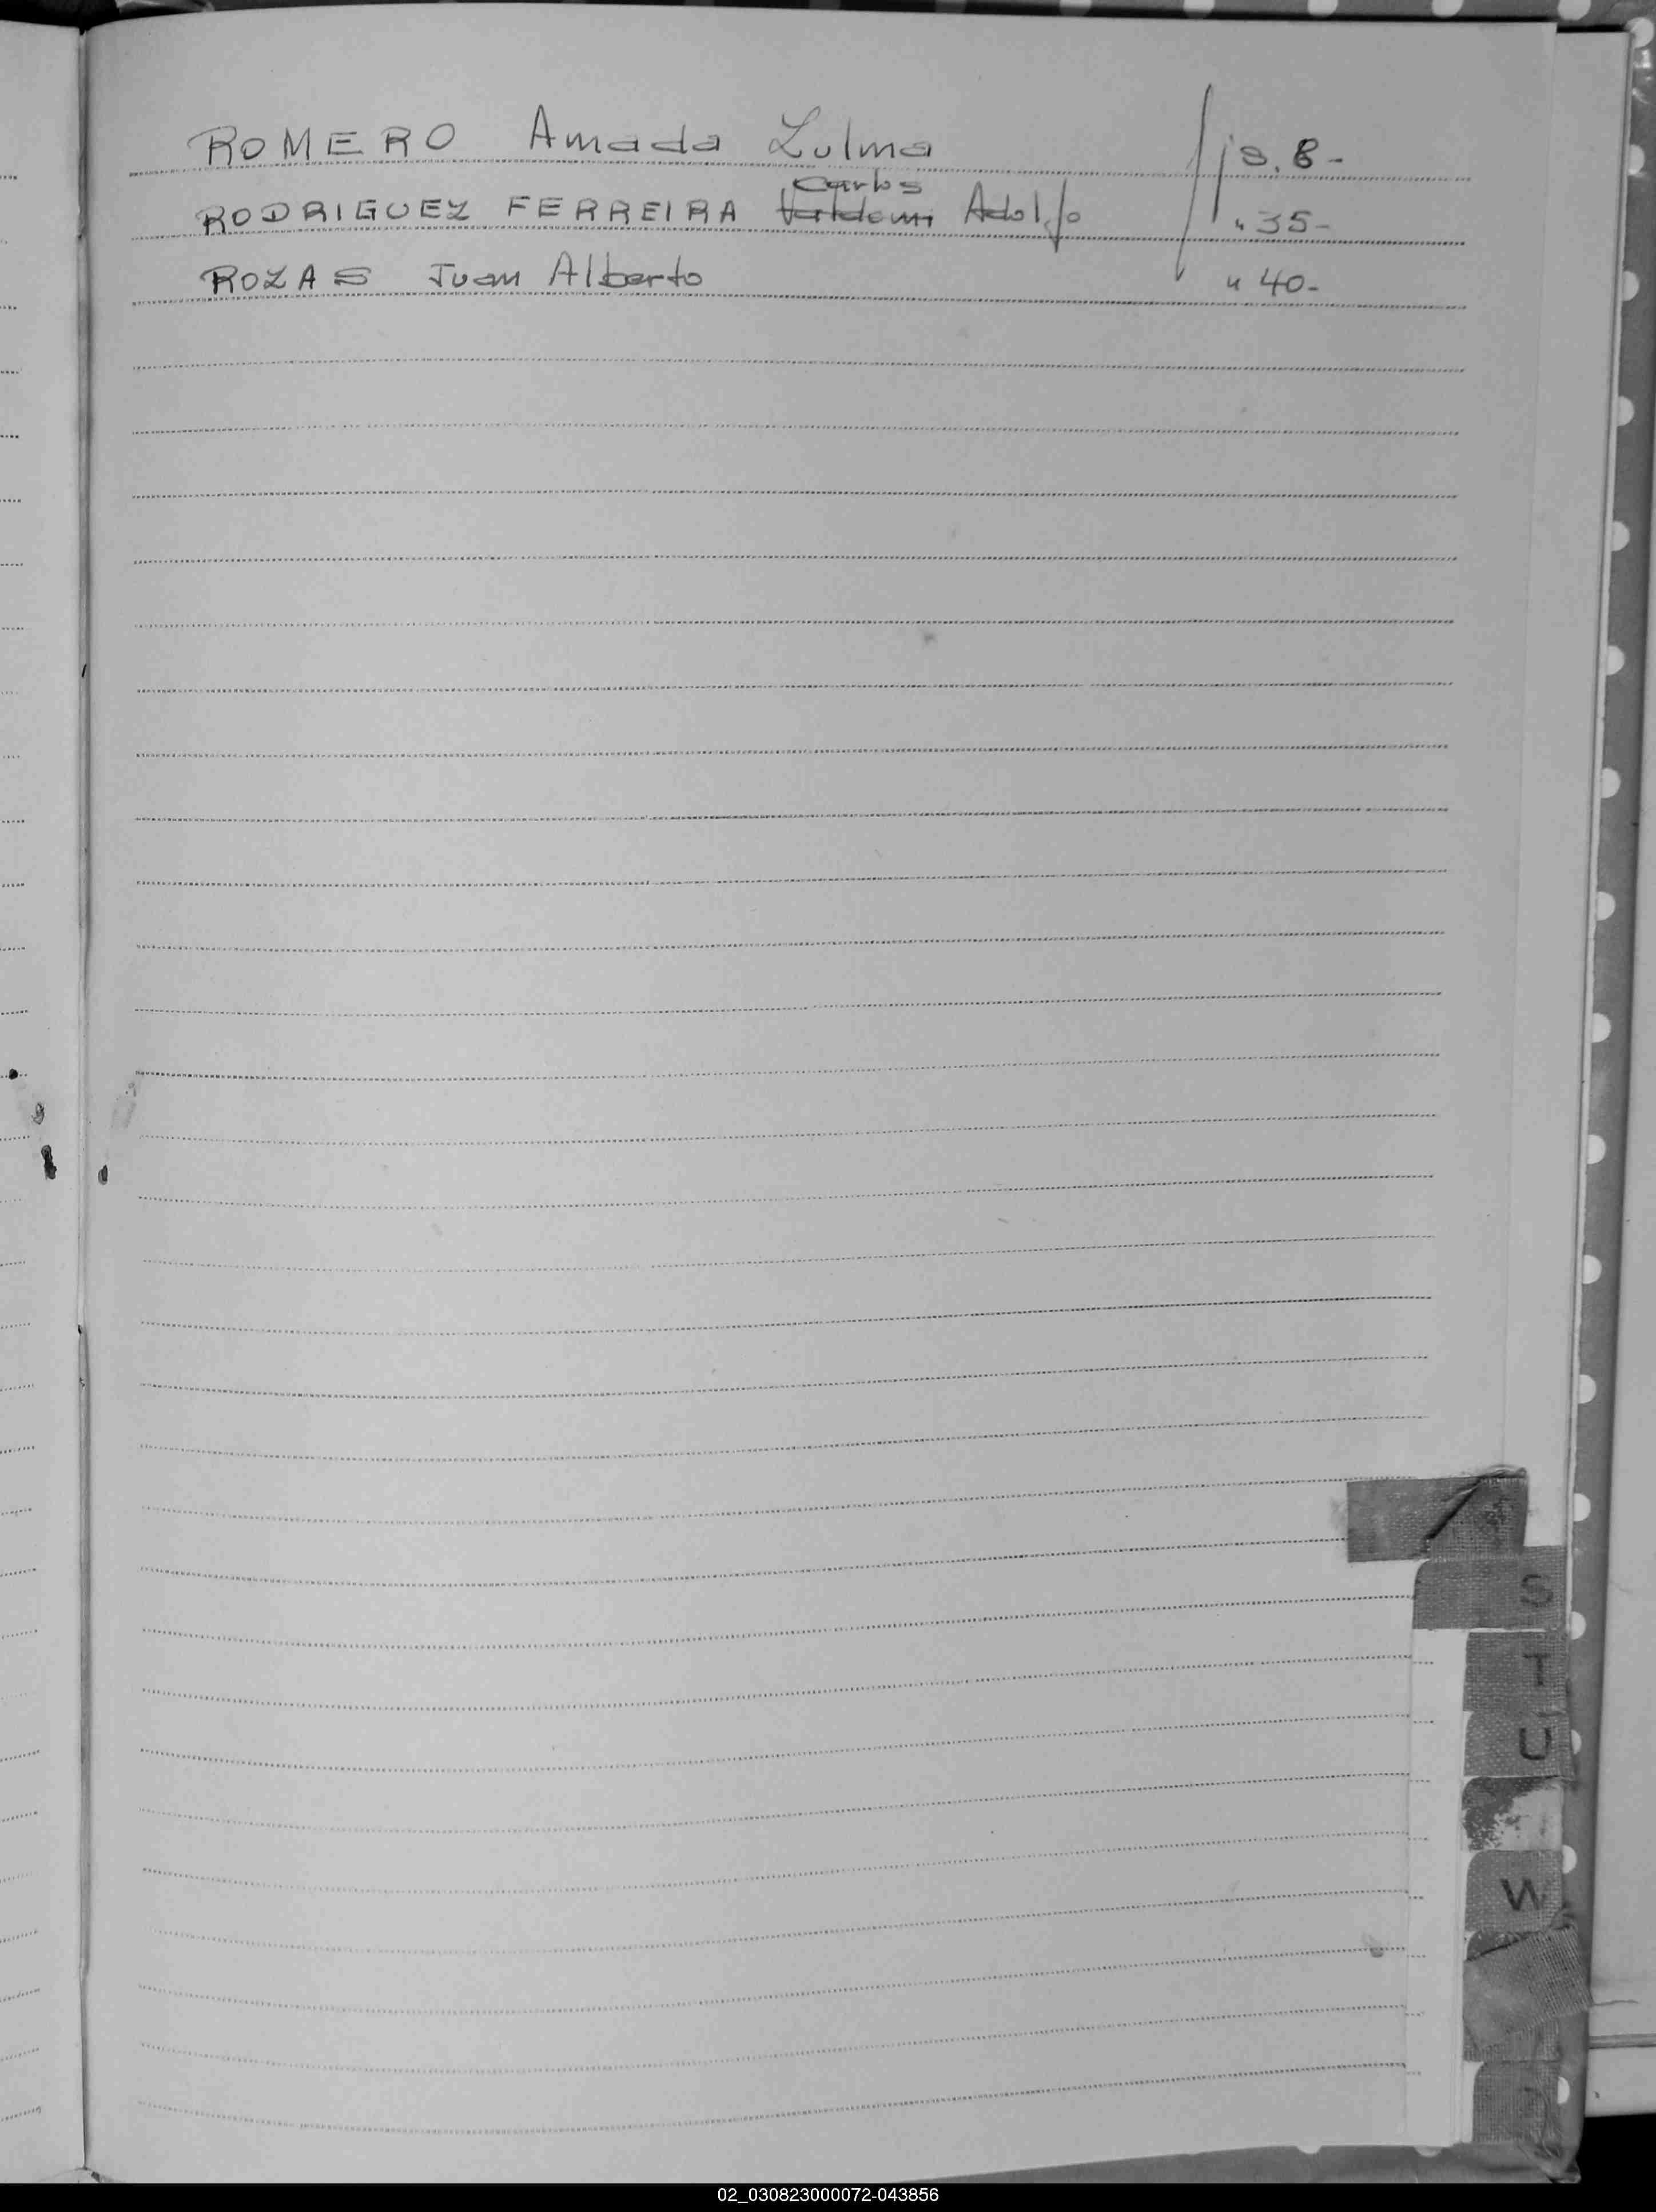 ROMERO Amada Zulma s. 8-
Carlos
RODRIGUEZ FERREIRA Adolfo " 35-
ROZAS Juan Alberto " 40-
S
T
U
W
02_030823000072-043856